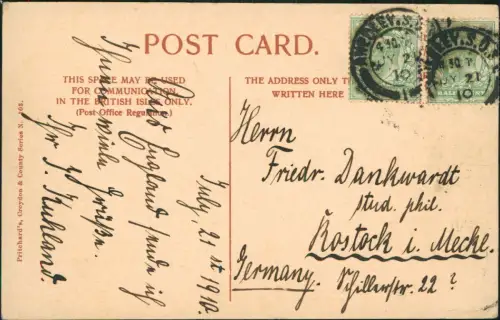 POST CARD.
THIS SPACE MAY BE USED
FOR COMMUNICATION
IN THE BRITISH ISLES ONLY.
(Post Office Regulation.)
THE ADDRESS ONLY T
WRITTEN HERE
July, 21st 1910.
Aus England sende ich
Ihnen viele Grüße.
Ihr J. Kuhland.
Herrn
Friedr. Dankwardt
stud. phil.
Rostock i. Meckl.
Schillerstr. 22?
Germany.
Pritchard's, Croydon & County Series
JY 21
10